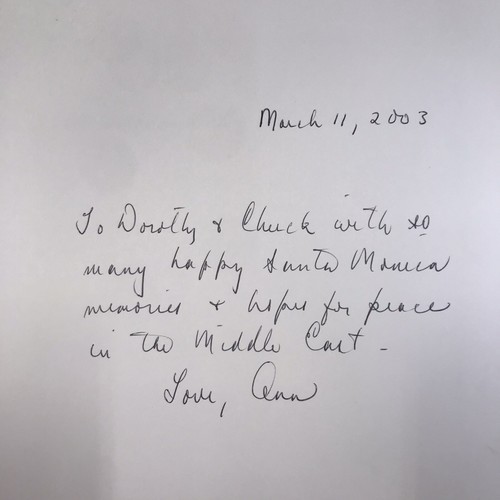 March 11, 2003
To Dorothy & Chuck with so
many happy Santa Monica
memories & hopes for peace
in the Middle East -
Love, Ann